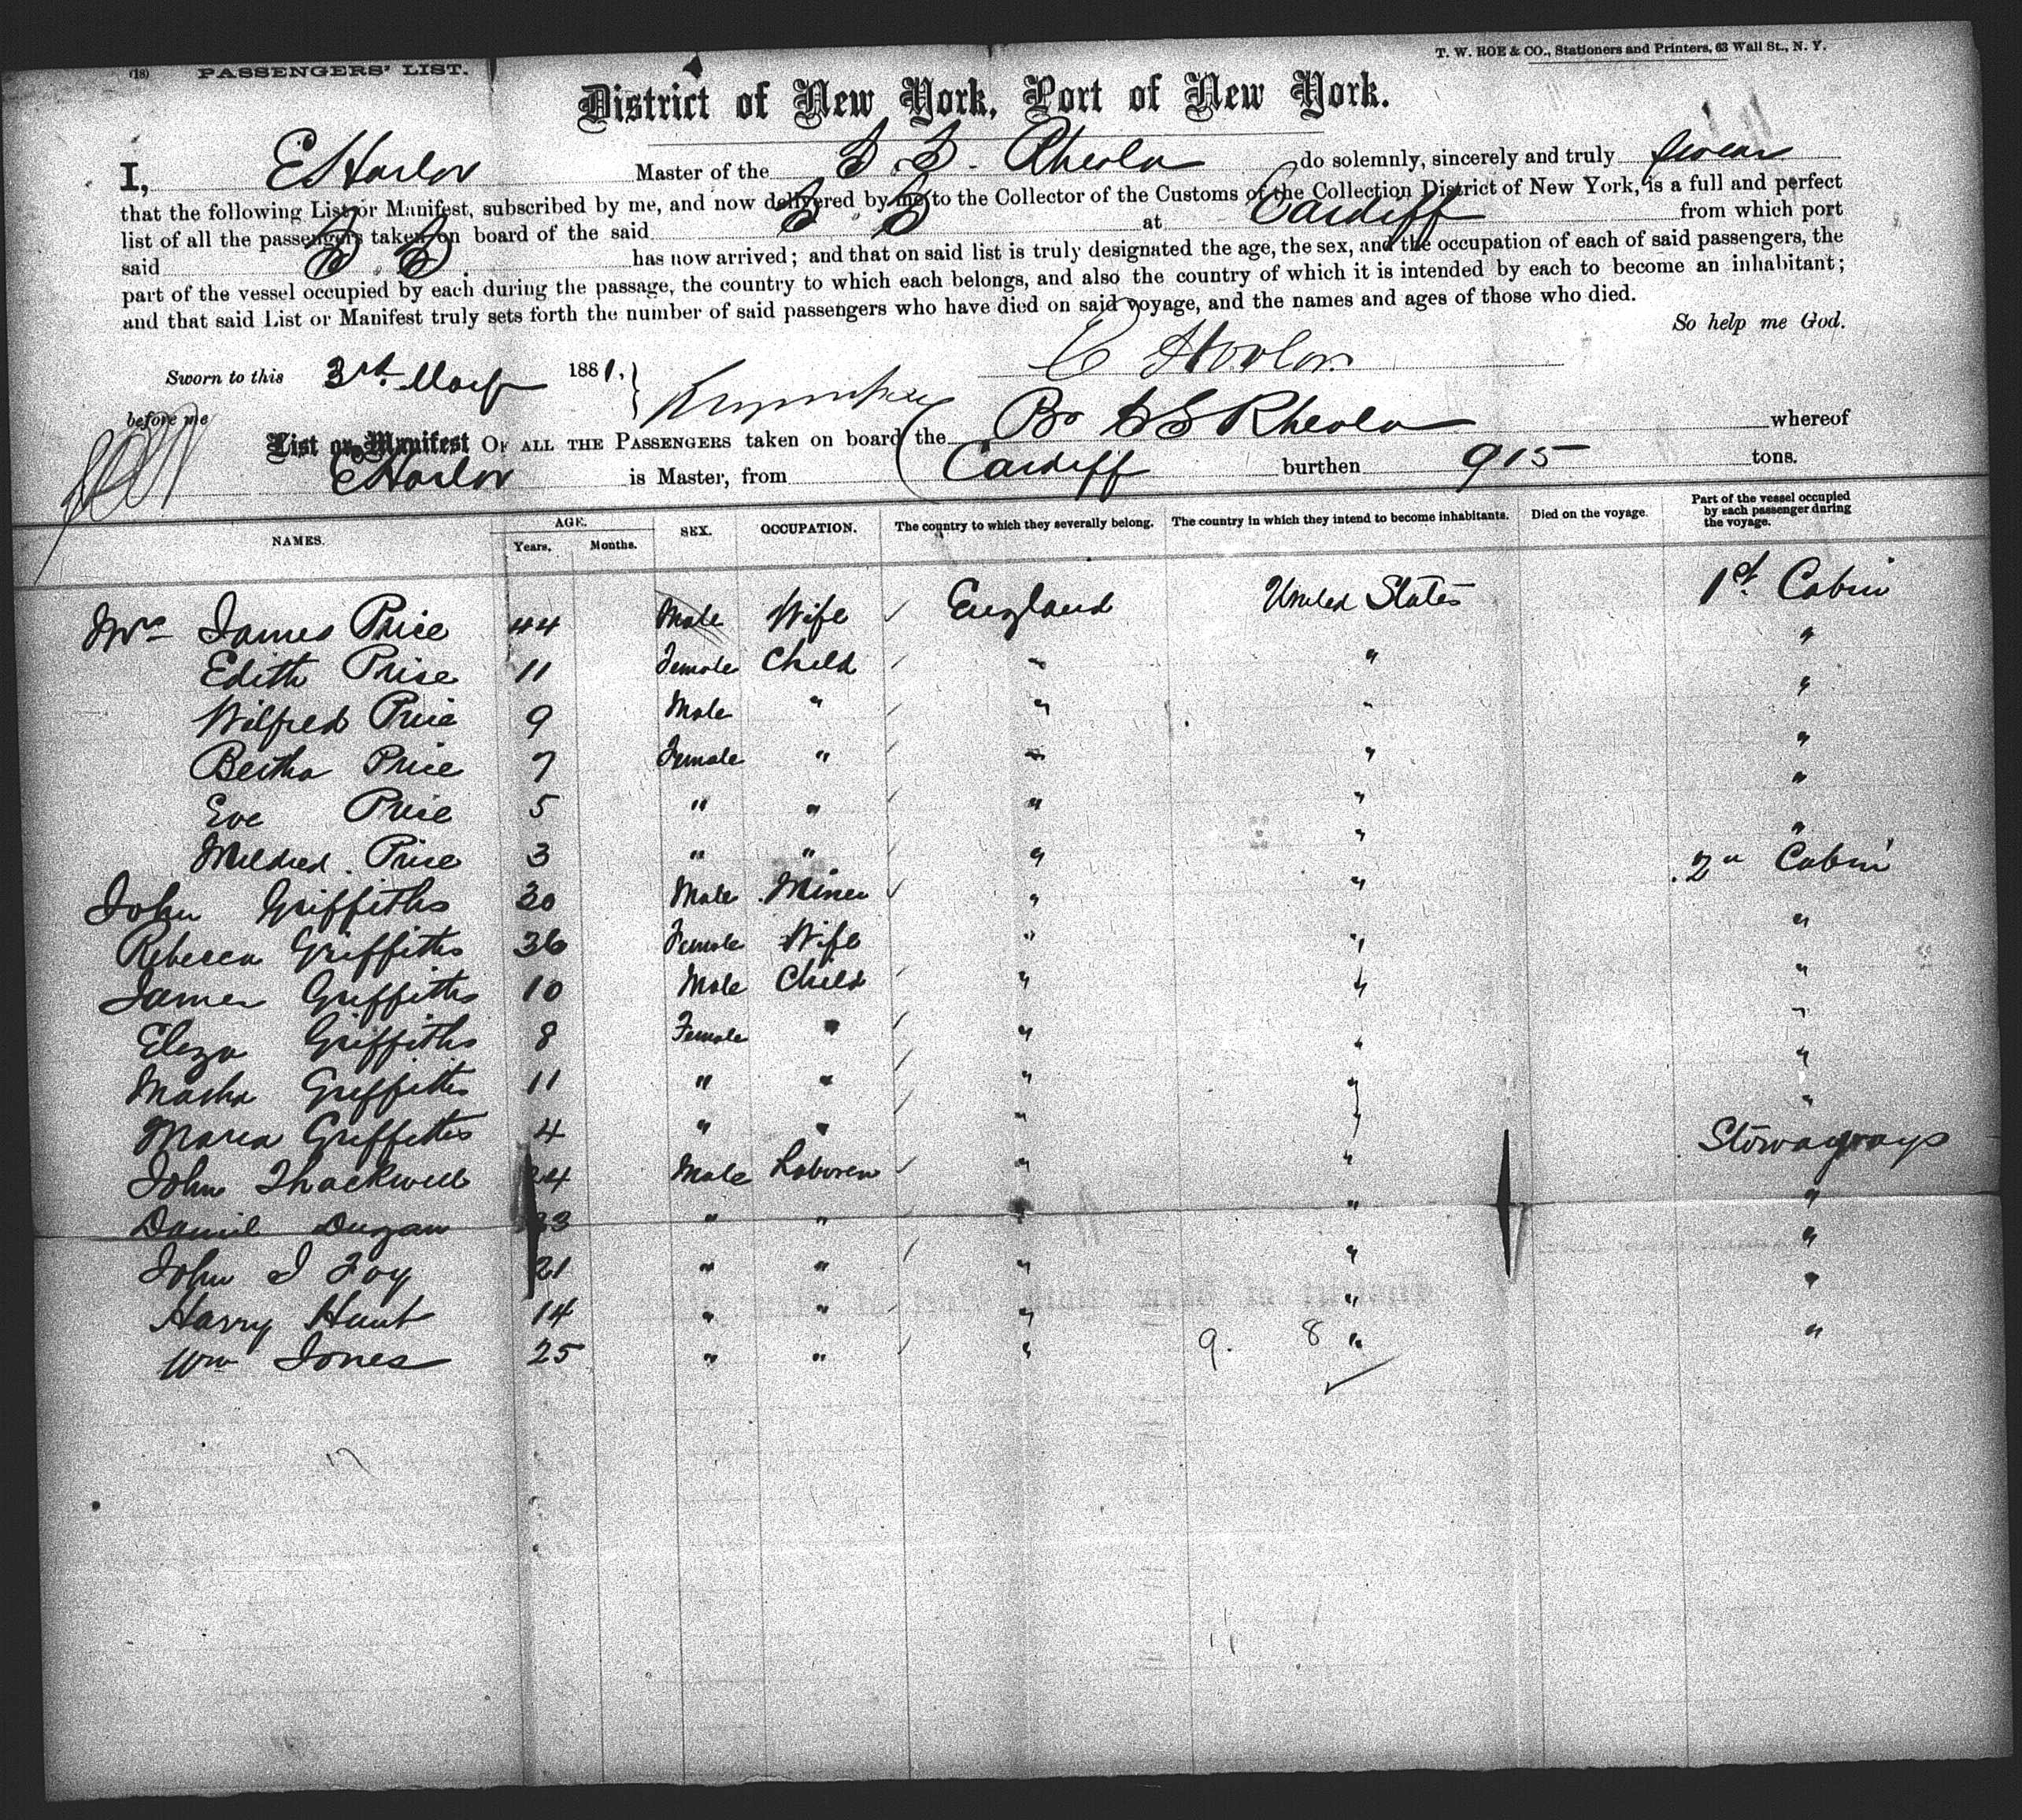 (18) PASSENGERS' LIST.
T. W. ROE & CO., Stationers and Printers, 63 Wall St., N. Y.
District of New York, Port of New York.
I, E Harlor Master of the S. S. Rheola do solemnly, sincerely and truly swear
that the following List or Manifest, subscribed by me, and now delivered by me to the Collector of the Customs of the Collection District of New York, is a full and perfect
list of all the passengers taken on board of the said S. S. at Cardiff from which port
said S. S. has now arrived; and that on said list is truly designated the age, the sex, and the occupation of each of said passengers, the
part of the vessel occupied by each during the passage, the country to which each belongs, and also the country of which it is intended by each to become an inhabitant;
and that said List or Manifest truly sets forth the number of said passengers who have died on said voyage, and the names and ages of those who died.
So help me God.
E Harlor
Sworn to this 3rd 1881,
before me
List or Manifest OF ALL THE PASSENGERS taken on board the Br SS Rheola whereof
E Harlor is Master, from Cardiff burthen 915 tons.
NAMES. AGE. Years. Months. SEX. OCCUPATION. The country to which they severally belong. The country in which they intend to become inhabitants. Died on the voyage. Part of the vessel occupied by each passenger during the voyage.
Mrs James Price 44 Male Wife England United States 1st Cabin
Edith Price 11 Female Child " " "
Wilfred Price 9 Male " " " "
Bertha Price 7 Female " " " "
Eve Price 5 " " " " "
Mildred Price 3 " " " " "
John Griffiths 30 Male Miner " " 2n Cabin
Rebecca Griffiths 36 Female Wife " " "
James Griffiths 10 Male Child " " "
Eliza Griffiths 8 Female " " " "
Griffiths 11 " " " " "
Maria Griffiths 4 " " " " "
John Thackwell 24 Male Laborer " " Stowaways
Daniel Dugan 23 " " " " "
John J Foy 21 " " " " "
Harry Hunt 14 " " " " "
Wm Jones 25 " " " " "
9. 8
17